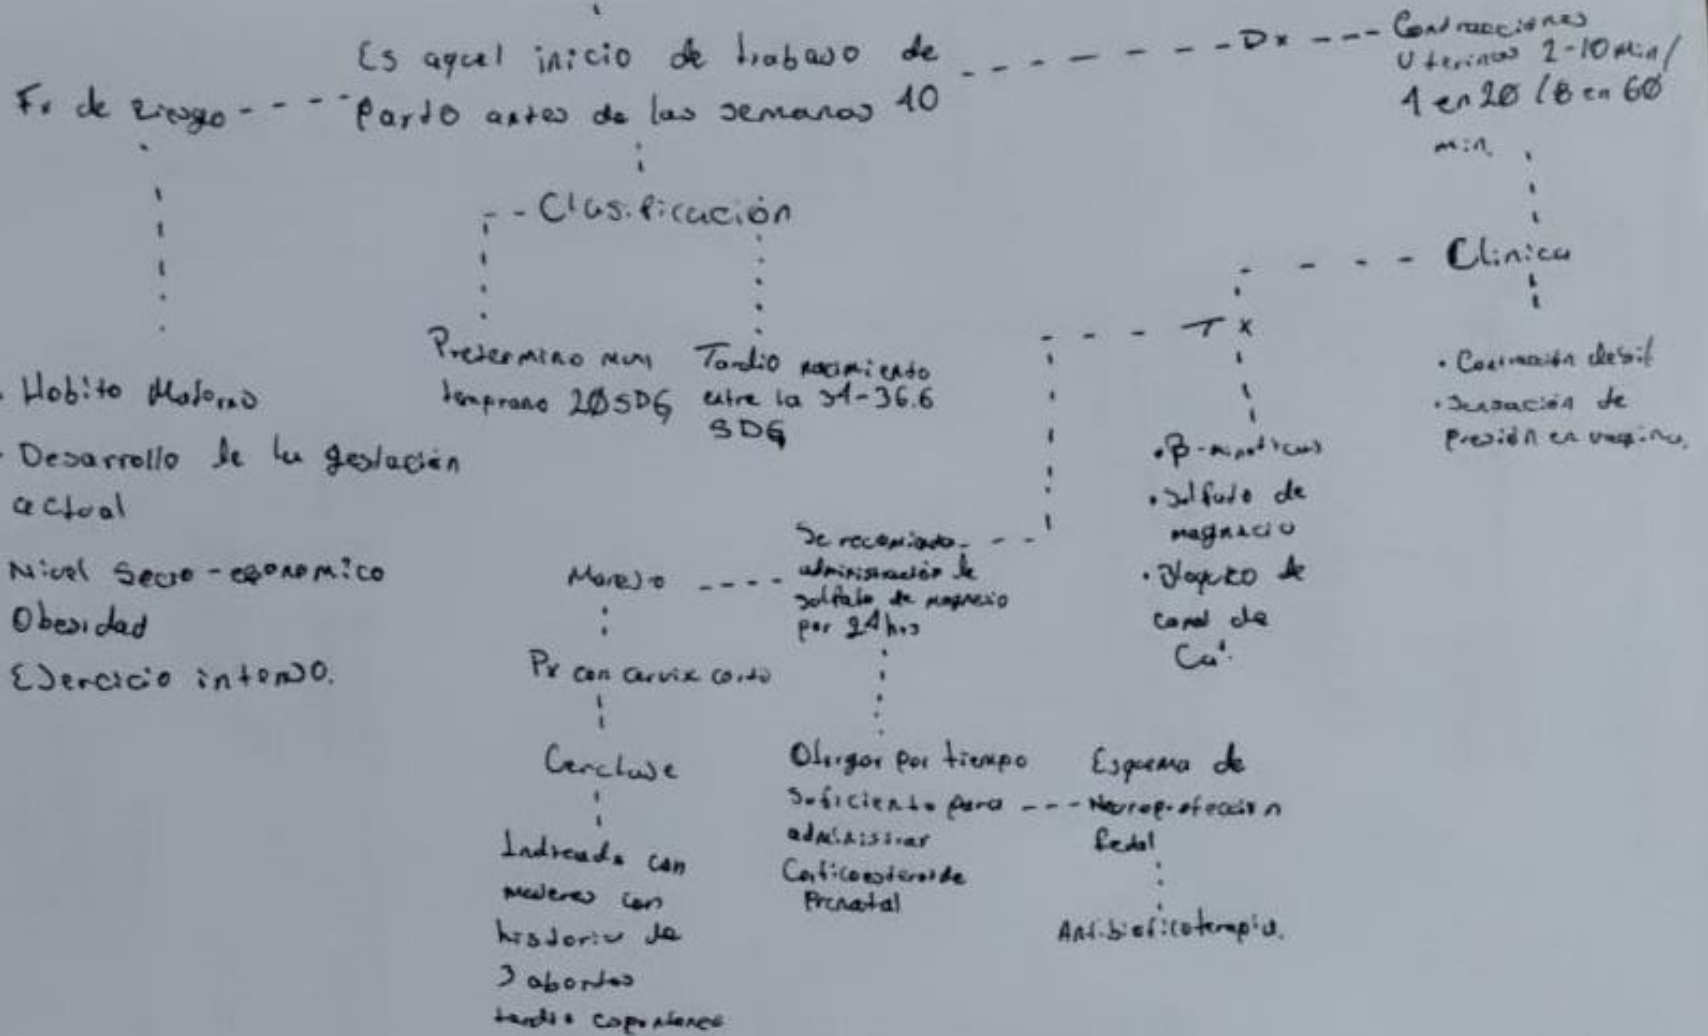 Es aquel inicio de trabajo de
parto antes de las semanas 40
Fr de riesgo
Dx
Contracciones
Uterinas 2-10 min/
4 en 20 / 8 en 60
min.
Clasificación
Clinica
Pretermino muy
temprano 20 SDG
Tardio nacimiento
entre la 34-36.6
SDG
Tx
• Contracción debil
• Sensación de
presión en vagina.
• Habito Materno
• Desarrollo de la gestación
actual
Nivel Socio-economico
Obesidad
Ejercicio intenso.
• β-mimeticos
• Sulfato de
magnecio
• Bloqueo de
canal de
Ca+.
Se recomienda
administración de
sulfato de magnesio
por 24 hrs
Manejo
Px con cervix corto
Cerclaje
Indicada con
mujeres con
historia de
3 abortos
tardio
Otorgar por tiempo
suficiente para
administrar
Corticoesteroide
Prenatal
Esquema de
Neuroprotección
fetal
Antibioticoterapia.